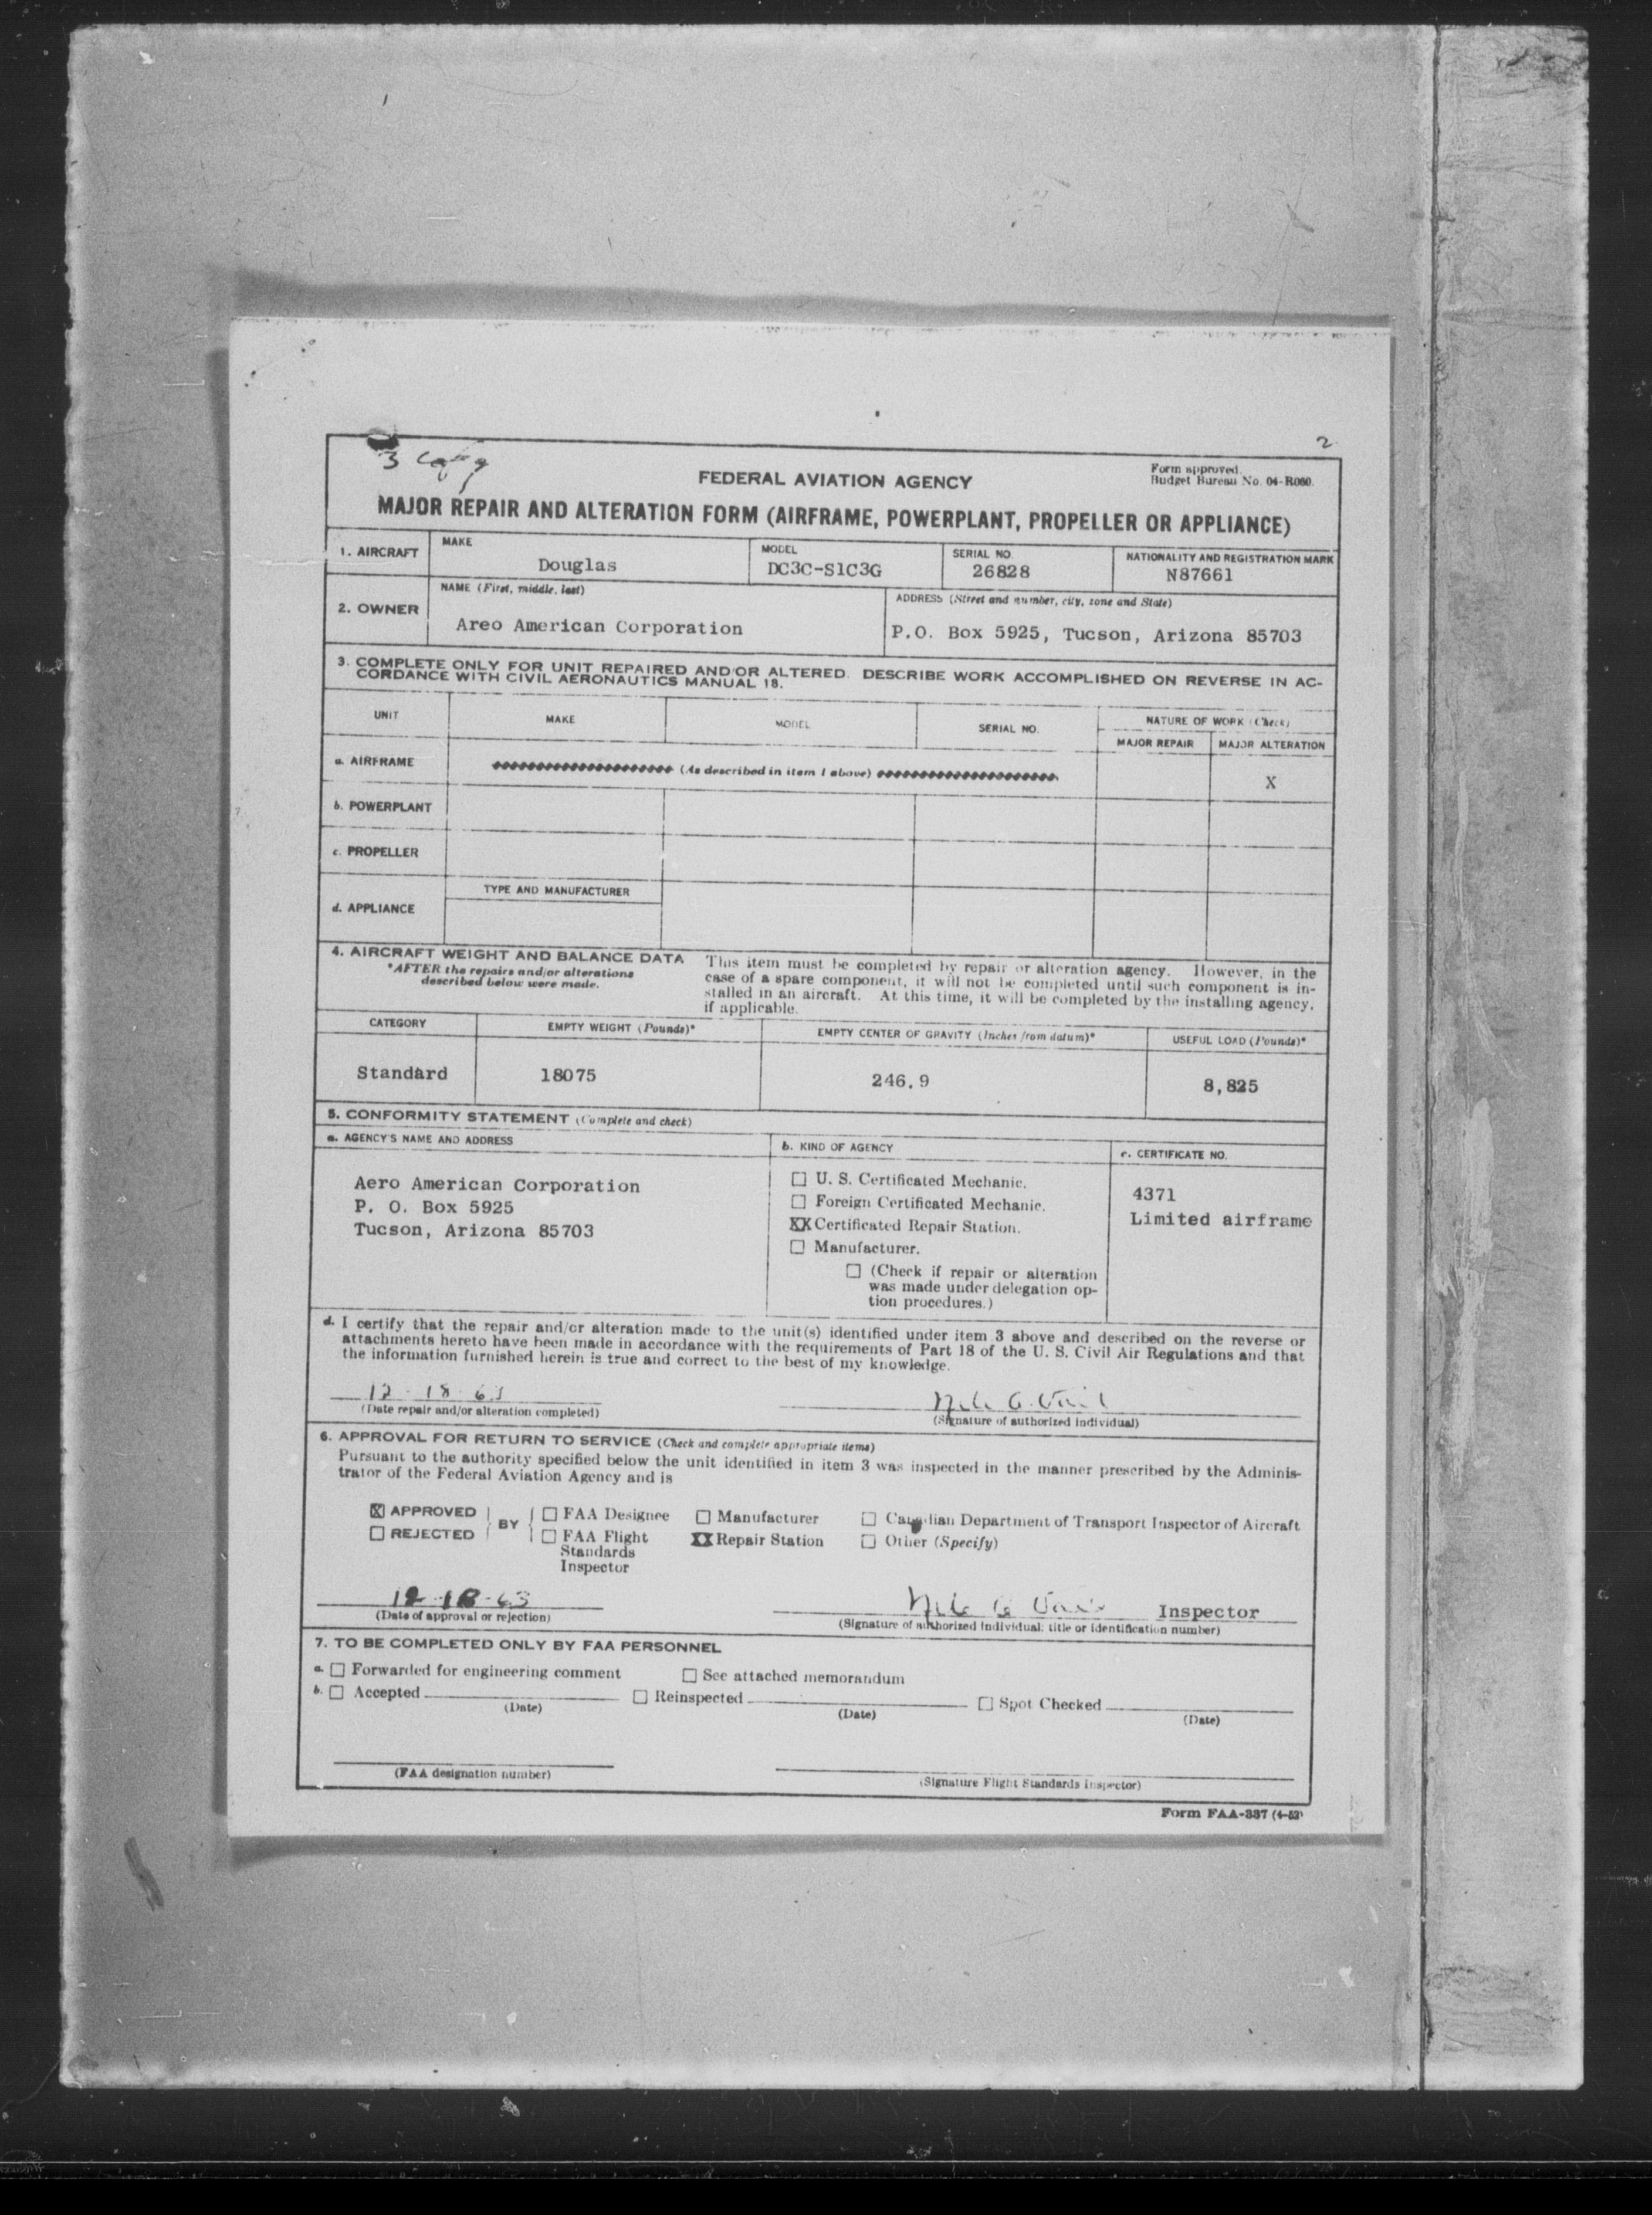 2
3 copy
FEDERAL AVIATION AGENCY
Form approved.
Budget Bureau No. 04-R060.
MAJOR REPAIR AND ALTERATION FORM (AIRFRAME, POWERPLANT, PROPELLER OR APPLIANCE)
1. AIRCRAFT
MAKE
Douglas
MODEL
DC3C-S1C3G
SERIAL NO.
26828
NATIONALITY AND REGISTRATION MARK
N87661
2. OWNER
NAME (First, middle, last)
Areo American Corporation
ADDRESS (Street and number, city, zone and State)
P.O. Box 5925, Tucson, Arizona 85703
3. COMPLETE ONLY FOR UNIT REPAIRED AND/OR ALTERED. DESCRIBE WORK ACCOMPLISHED ON REVERSE IN AC-
CORDANCE WITH CIVIL AERONAUTICS MANUAL 18.
UNIT
MAKE
MODEL
SERIAL NO.
NATURE OF WORK (Check)
MAJOR REPAIR
MAJOR ALTERATION
a. AIRFRAME
(As described in item 1 above)
X
b. POWERPLANT
c. PROPELLER
TYPE AND MANUFACTURER
d. APPLIANCE
4. AIRCRAFT WEIGHT AND BALANCE DATA
*AFTER the repairs and/or alterations
described below were made.
This item must be completed by repair or alteration agency. However, in the
case of a spare component, it will not be completed until such component is in-
stalled in an aircraft. At this time, it will be completed by the installing agency,
if applicable.
CATEGORY
EMPTY WEIGHT (Pounds)*
EMPTY CENTER OF GRAVITY (Inches from datum)*
USEFUL LOAD (Pounds)*
Standard
18075
246.9
8,825
5. CONFORMITY STATEMENT (Complete and check)
a. AGENCY'S NAME AND ADDRESS
b. KIND OF AGENCY
c. CERTIFICATE NO.
Aero American Corporation
P. O. Box 5925
Tucson, Arizona 85703
U. S. Certificated Mechanic.
Foreign Certificated Mechanic.
XX Certificated Repair Station.
Manufacturer.
(Check if repair or alteration
was made under delegation op-
tion procedures.)
4371
Limited airframe
d. I certify that the repair and/or alteration made to the unit(s) identified under item 3 above and described on the reverse or
attachments hereto have been made in accordance with the requirements of Part 18 of the U. S. Civil Air Regulations and that
the information furnished herein is true and correct to the best of my knowledge.
12-18-63
(Date repair and/or alteration completed)
(Signature of authorized individual)
6. APPROVAL FOR RETURN TO SERVICE (Check and complete appropriate items)
Pursuant to the authority specified below the unit identified in item 3 was inspected in the manner prescribed by the Adminis-
trator of the Federal Aviation Agency and is
X APPROVED
REJECTED
BY
FAA Designee
FAA Flight
Standards
Inspector
Manufacturer
XX Repair Station
Canadian Department of Transport Inspector of Aircraft
Other (Specify)
12-18-63
(Date of approval or rejection)
Inspector
(Signature of authorized individual: title or identification number)
7. TO BE COMPLETED ONLY BY FAA PERSONNEL
a. Forwarded for engineering comment
See attached memorandum
b. Accepted
(Date)
Reinspected
(Date)
Spot Checked
(Date)
(FAA designation number)
(Signature Flight Standards Inspector)
Form FAA-337